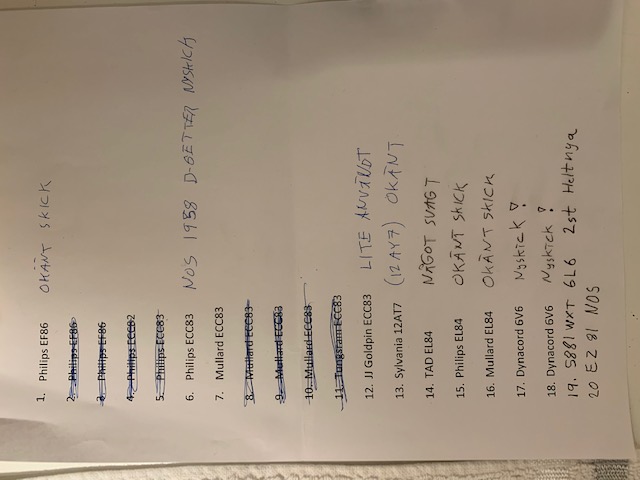 1. Philips EF86 OKÄNT SKICK
2. Philips EF86
3. Philips EF86
4. Philips ECC82
5. Philips ECC83
6. Philips ECC83 NOS 1958 D-GETTER NYSKICK
7. Mullard ECC83
8. Mullard ECC83
9. Mullard ECC83
10. Mullard ECC83
11. Tungsram ECC83
12. JJ Goldpin ECC83 LITE ANVÄNDT
13. Sylvania 12AT7 (12AY7) OKÄNT
14. TAD EL84 NÅGOT SVAGT
15. Philips EL84 OKÄNT SKICK
16. Mullard EL84 OKÄNT SKICK
17. Dynacord 6V6 Nyskick?
18. Dynacord 6V6 Nyskick?
19. 5881 WXT 6L6 2st Heltnya
20 EZ 81 NOS